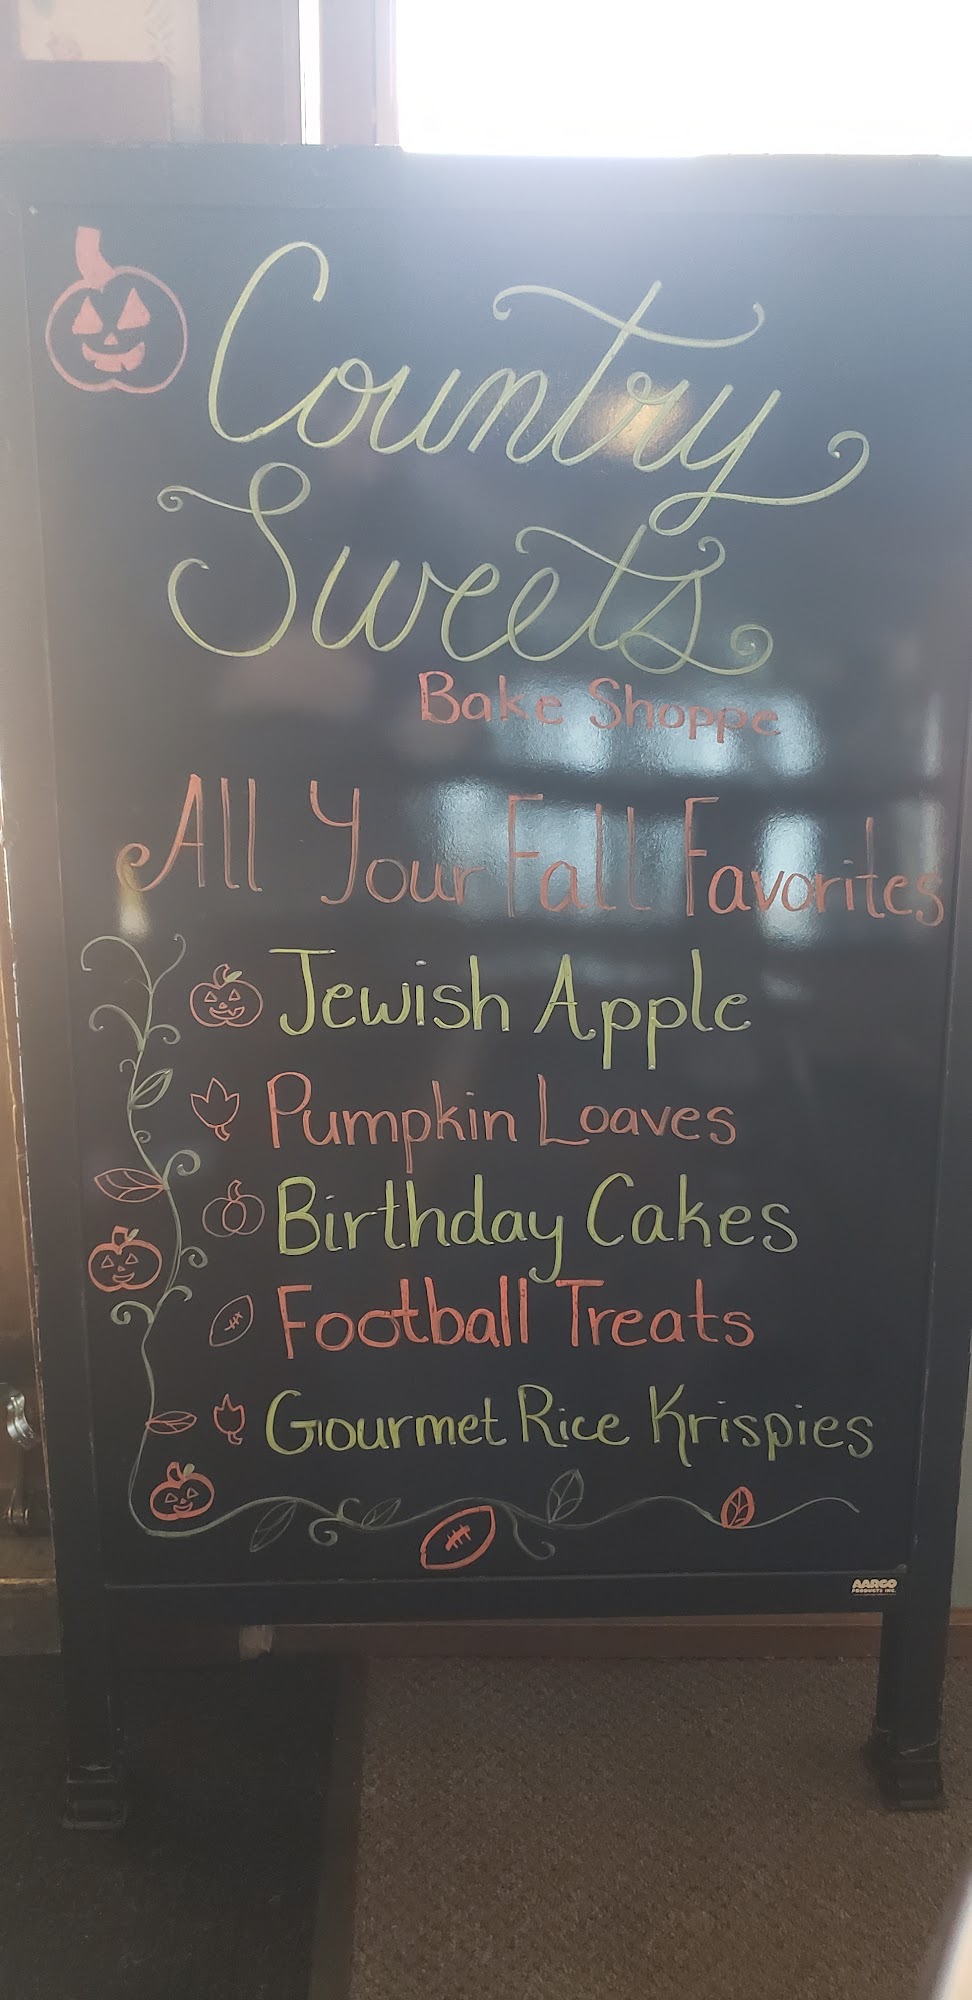 Country
Sweets
Bake Shoppe
All Your Fall Favorites
Jewish Apple
Pumpkin Loaves
Birthday Cakes
Football Treats
Gourmet Rice Krispies
AARCO
PRODUCTS INC.